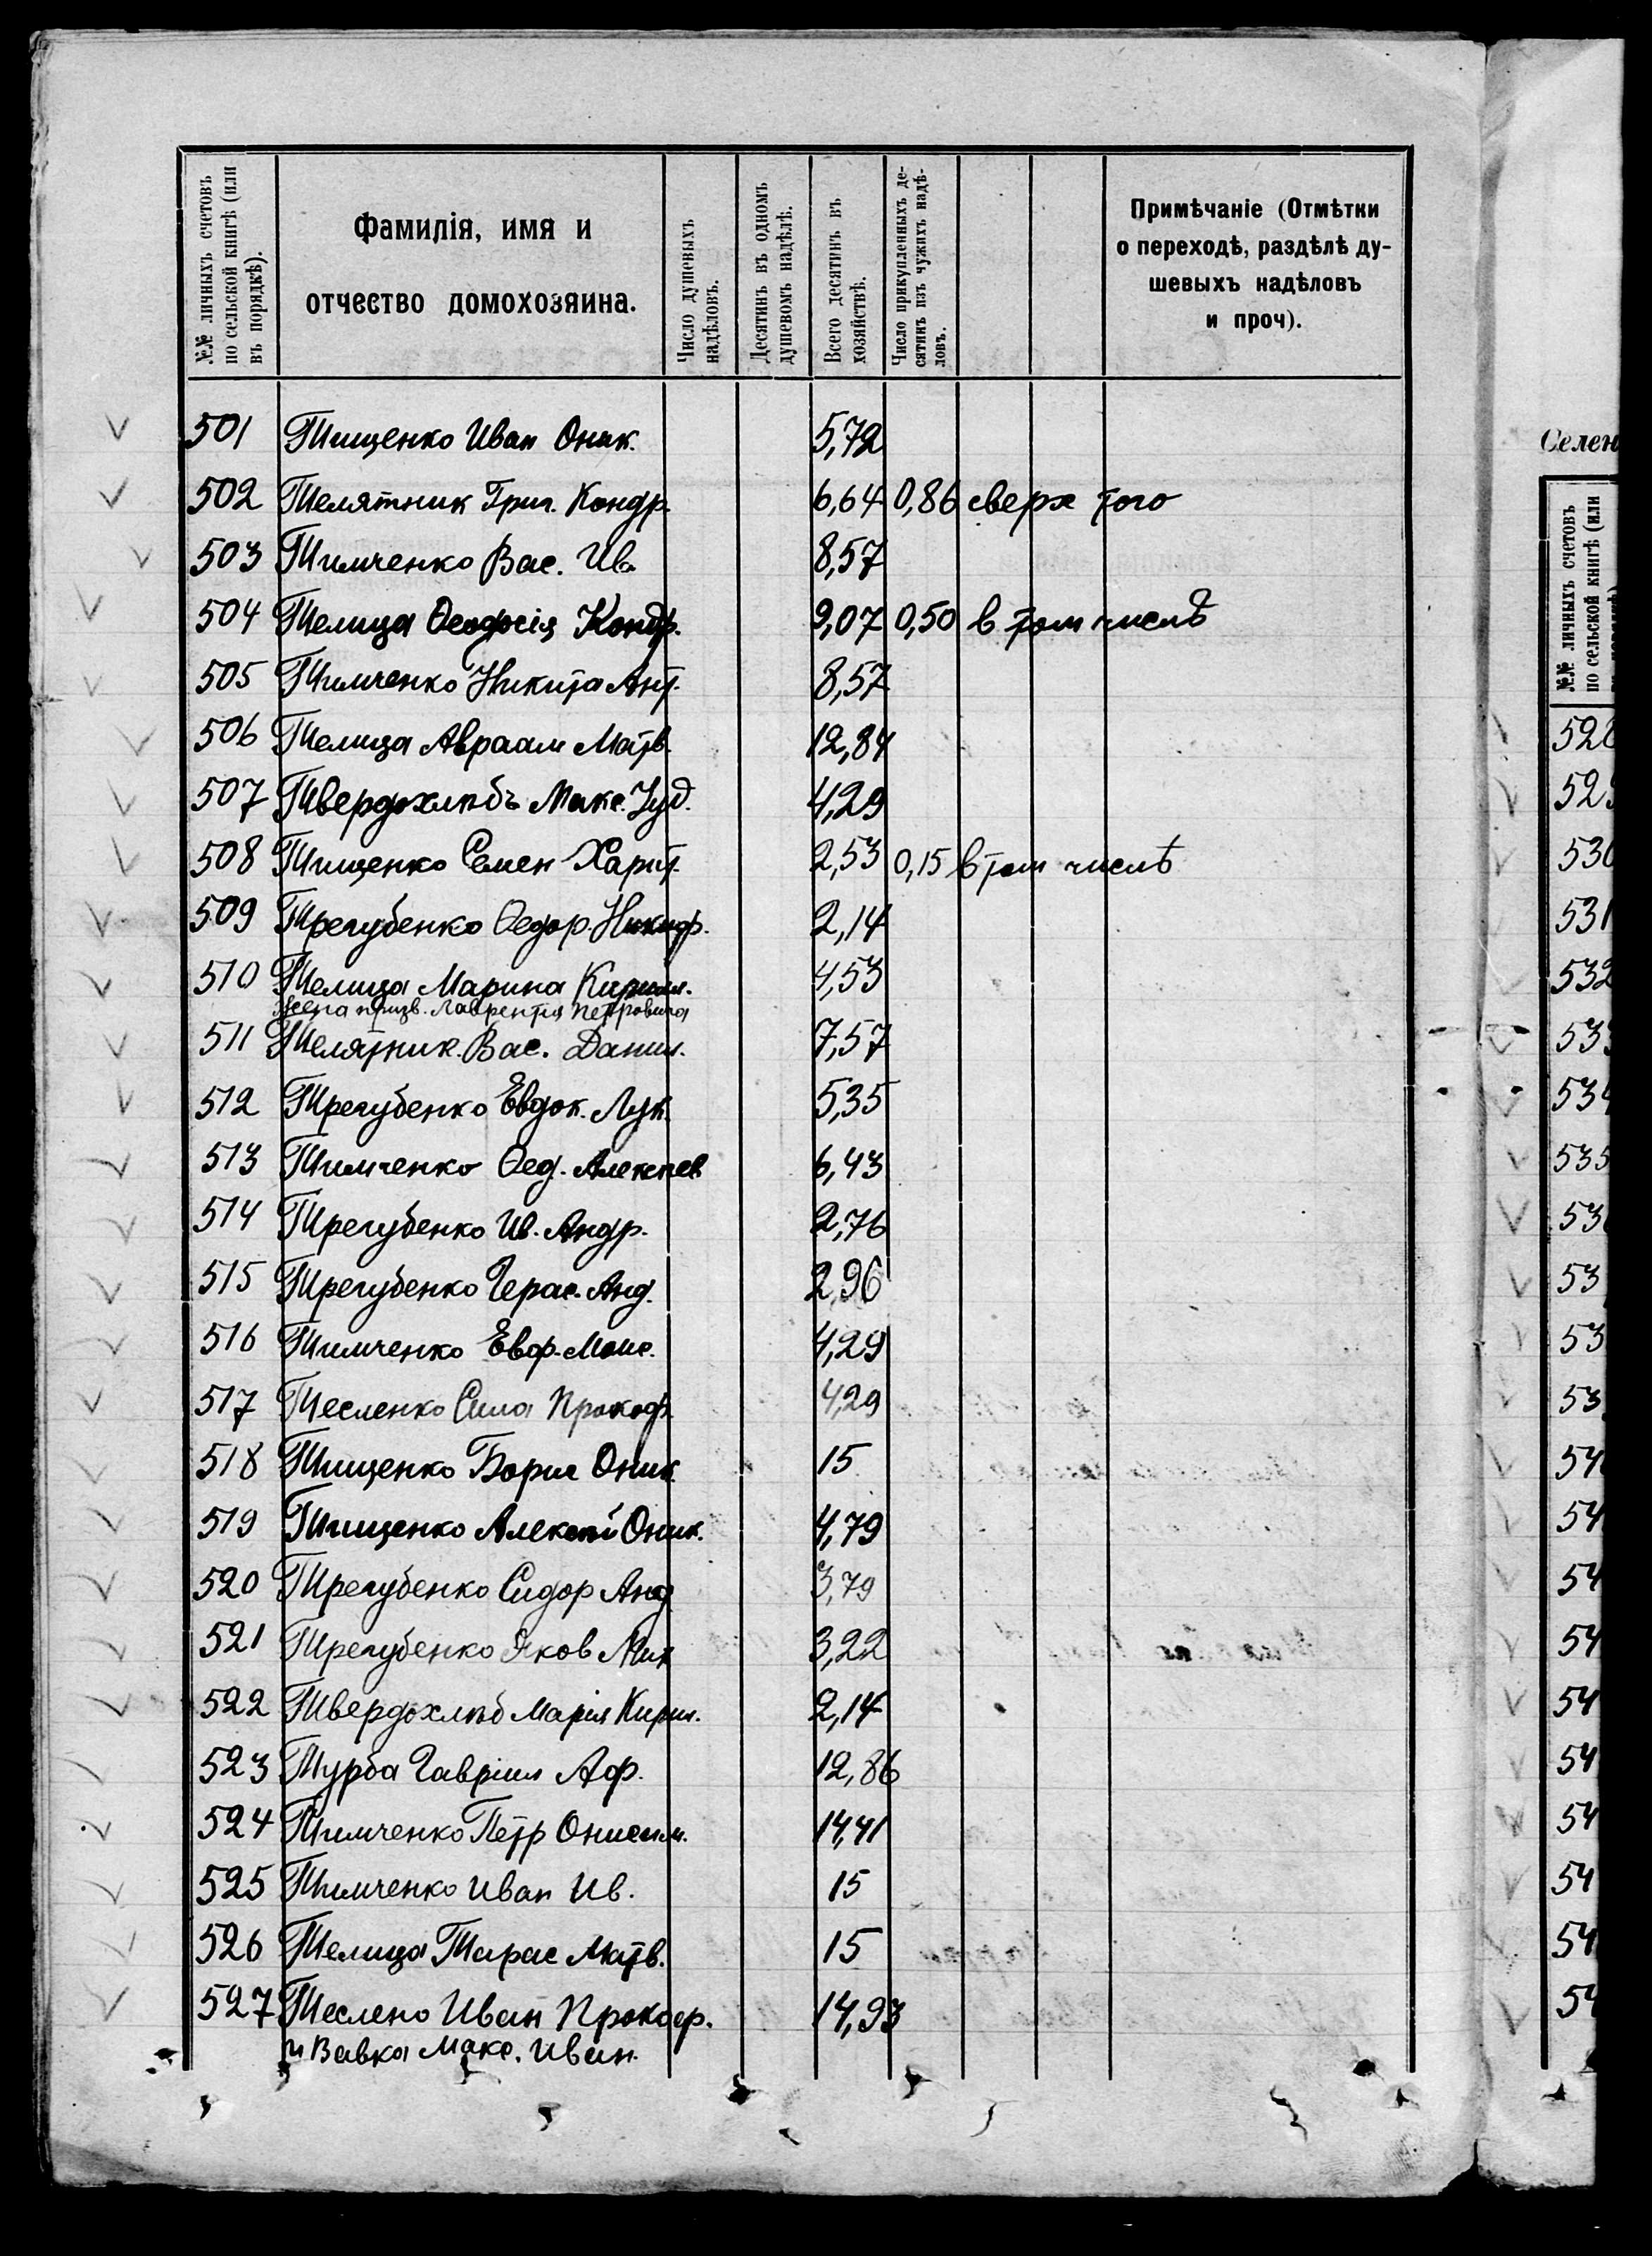 №№ личныхъ счетовъ по сельской книгѣ (или въ порядкѣ).
Фамилія, имя и отчество домохозяина.
Число душевыхъ надѣловъ.
Десятинъ въ одномъ душевомъ надѣлѣ.
Всего десятинъ въ хозяйствѣ.
Число прикупленныхъ десятинъ изъ чужихъ надѣловъ.
Примѣчаніе (Отмѣтки о переходѣ, раздѣлѣ душевыхъ надѣловъ и проч).
501 Тищенко Иван Оник. 5,72
502 Телятник Григ. Кондр. 6,64 0,86 сверх того
503 Тимченко Вас. Ив. 8,57
504 Телица Ѳеодосія Кондр. 9,07 0,50 в том числѣ
505 Тимченко Никита Ант. 8,57
506 Телица Авраам Матв. 12,84
507 Твердохлѣбъ Макс. Іуд. 4,29
508 Тищенко Семен Харит. 2,53 0,15 в том числѣ
509 Трегубенко Ѳедор. Никиф. 2,14
510 Телица Марина Кирил. 4,53
жена призв. Лаврентія Петровича
511 Телятник. Вас. Данил. 7,57
512 Трегубенко Евдок. Лук. 5,35
513 Тимченко Ѳед. Алексѣев 6,43
514 Трегубенко Ив. Андр. 2,76
515 Трегубенко Герас. Анд. 2,96
516 Тимченко Евф. Моис. 4,29
517 Тесленко Сила Прокоф. 4,29
518 Тищенко Борис Оник 15
519 Тищенко Алексѣй Оник. 4,79
520 Трегубенко Сидор Анд 3,79
521 Трегубенко Яков Мих 3,22
522 Твердохлѣб Марія Кирил. 2,14
523 Турба Гавріил Аф. 12,86
524 Тимченко Петр Онисим. 14,41
525 Тимченко Иван Ив. 15
526 Телица Тарас Матв. 15
527 Теслено Иван Прокоф. 14,93
и Вавка Макс. Иван.
Селен
№№ личныхъ счетовъ по сельской книгѣ (или
528
529
530
531
532
533
534
535
53
53
53
53
54
54
54
54
54
54
54
54
54
54